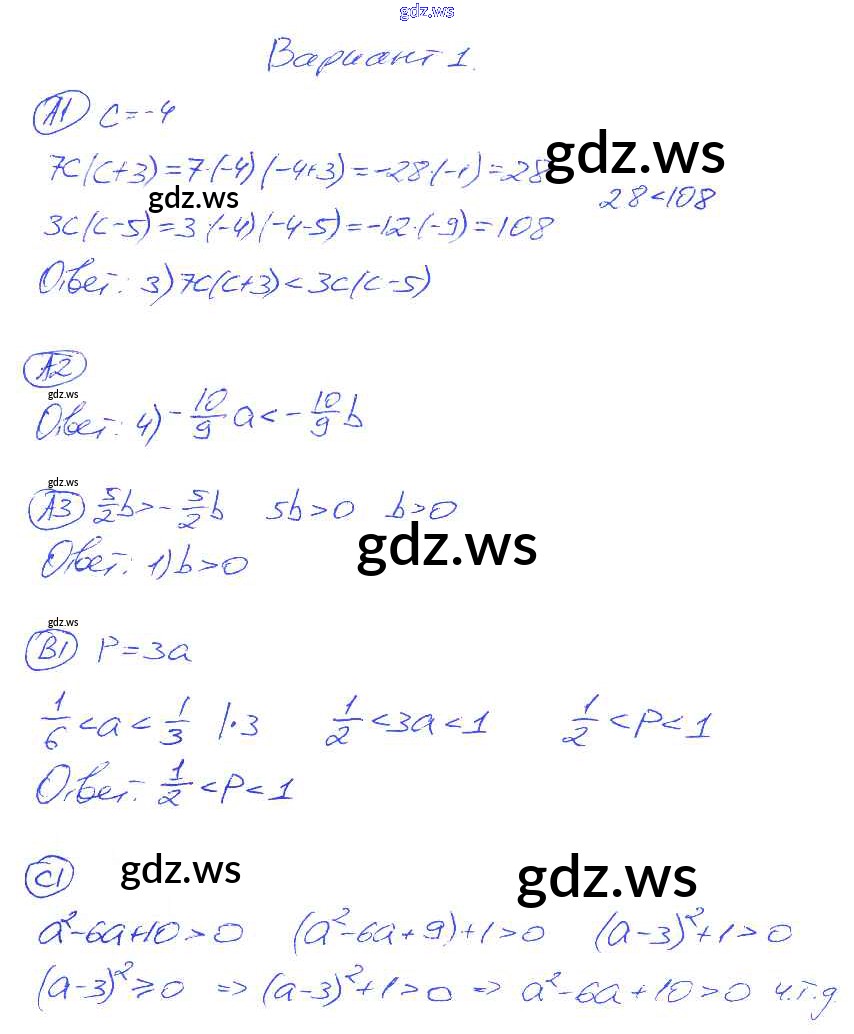 gdz.ws
Вариант 1.
А1 c = -4
7c(c+3) = 7·(-4)(-4+3) = -28·(-1) = 28
gdz.ws
gdz.ws
28 < 108
3c(c-5) = 3·(-4)(-4-5) = -12·(-9) = 108
Ответ: 3) 7c(c+3) < 3c(c-5)
А2
gdz.ws
Ответ: 4) -10/9 a < -10/9 b
gdz.ws
А3 5/2 b > -5/2 b 5b > 0 b > 0
gdz.ws
Ответ: 1) b > 0
gdz.ws
В1 P = 3a
1/6 < a < 1/3 |·3 1/2 < 3a < 1 1/2 < P < 1
Ответ: 1/2 < P < 1
С1 gdz.ws gdz.ws
a²-6a+10 > 0 (a²-6a+9)+1 > 0 (a-3)²+1 > 0
(a-3)² ≥ 0 => (a-3)²+1 > 0 => a²-6a+10 > 0 ч.т.д.